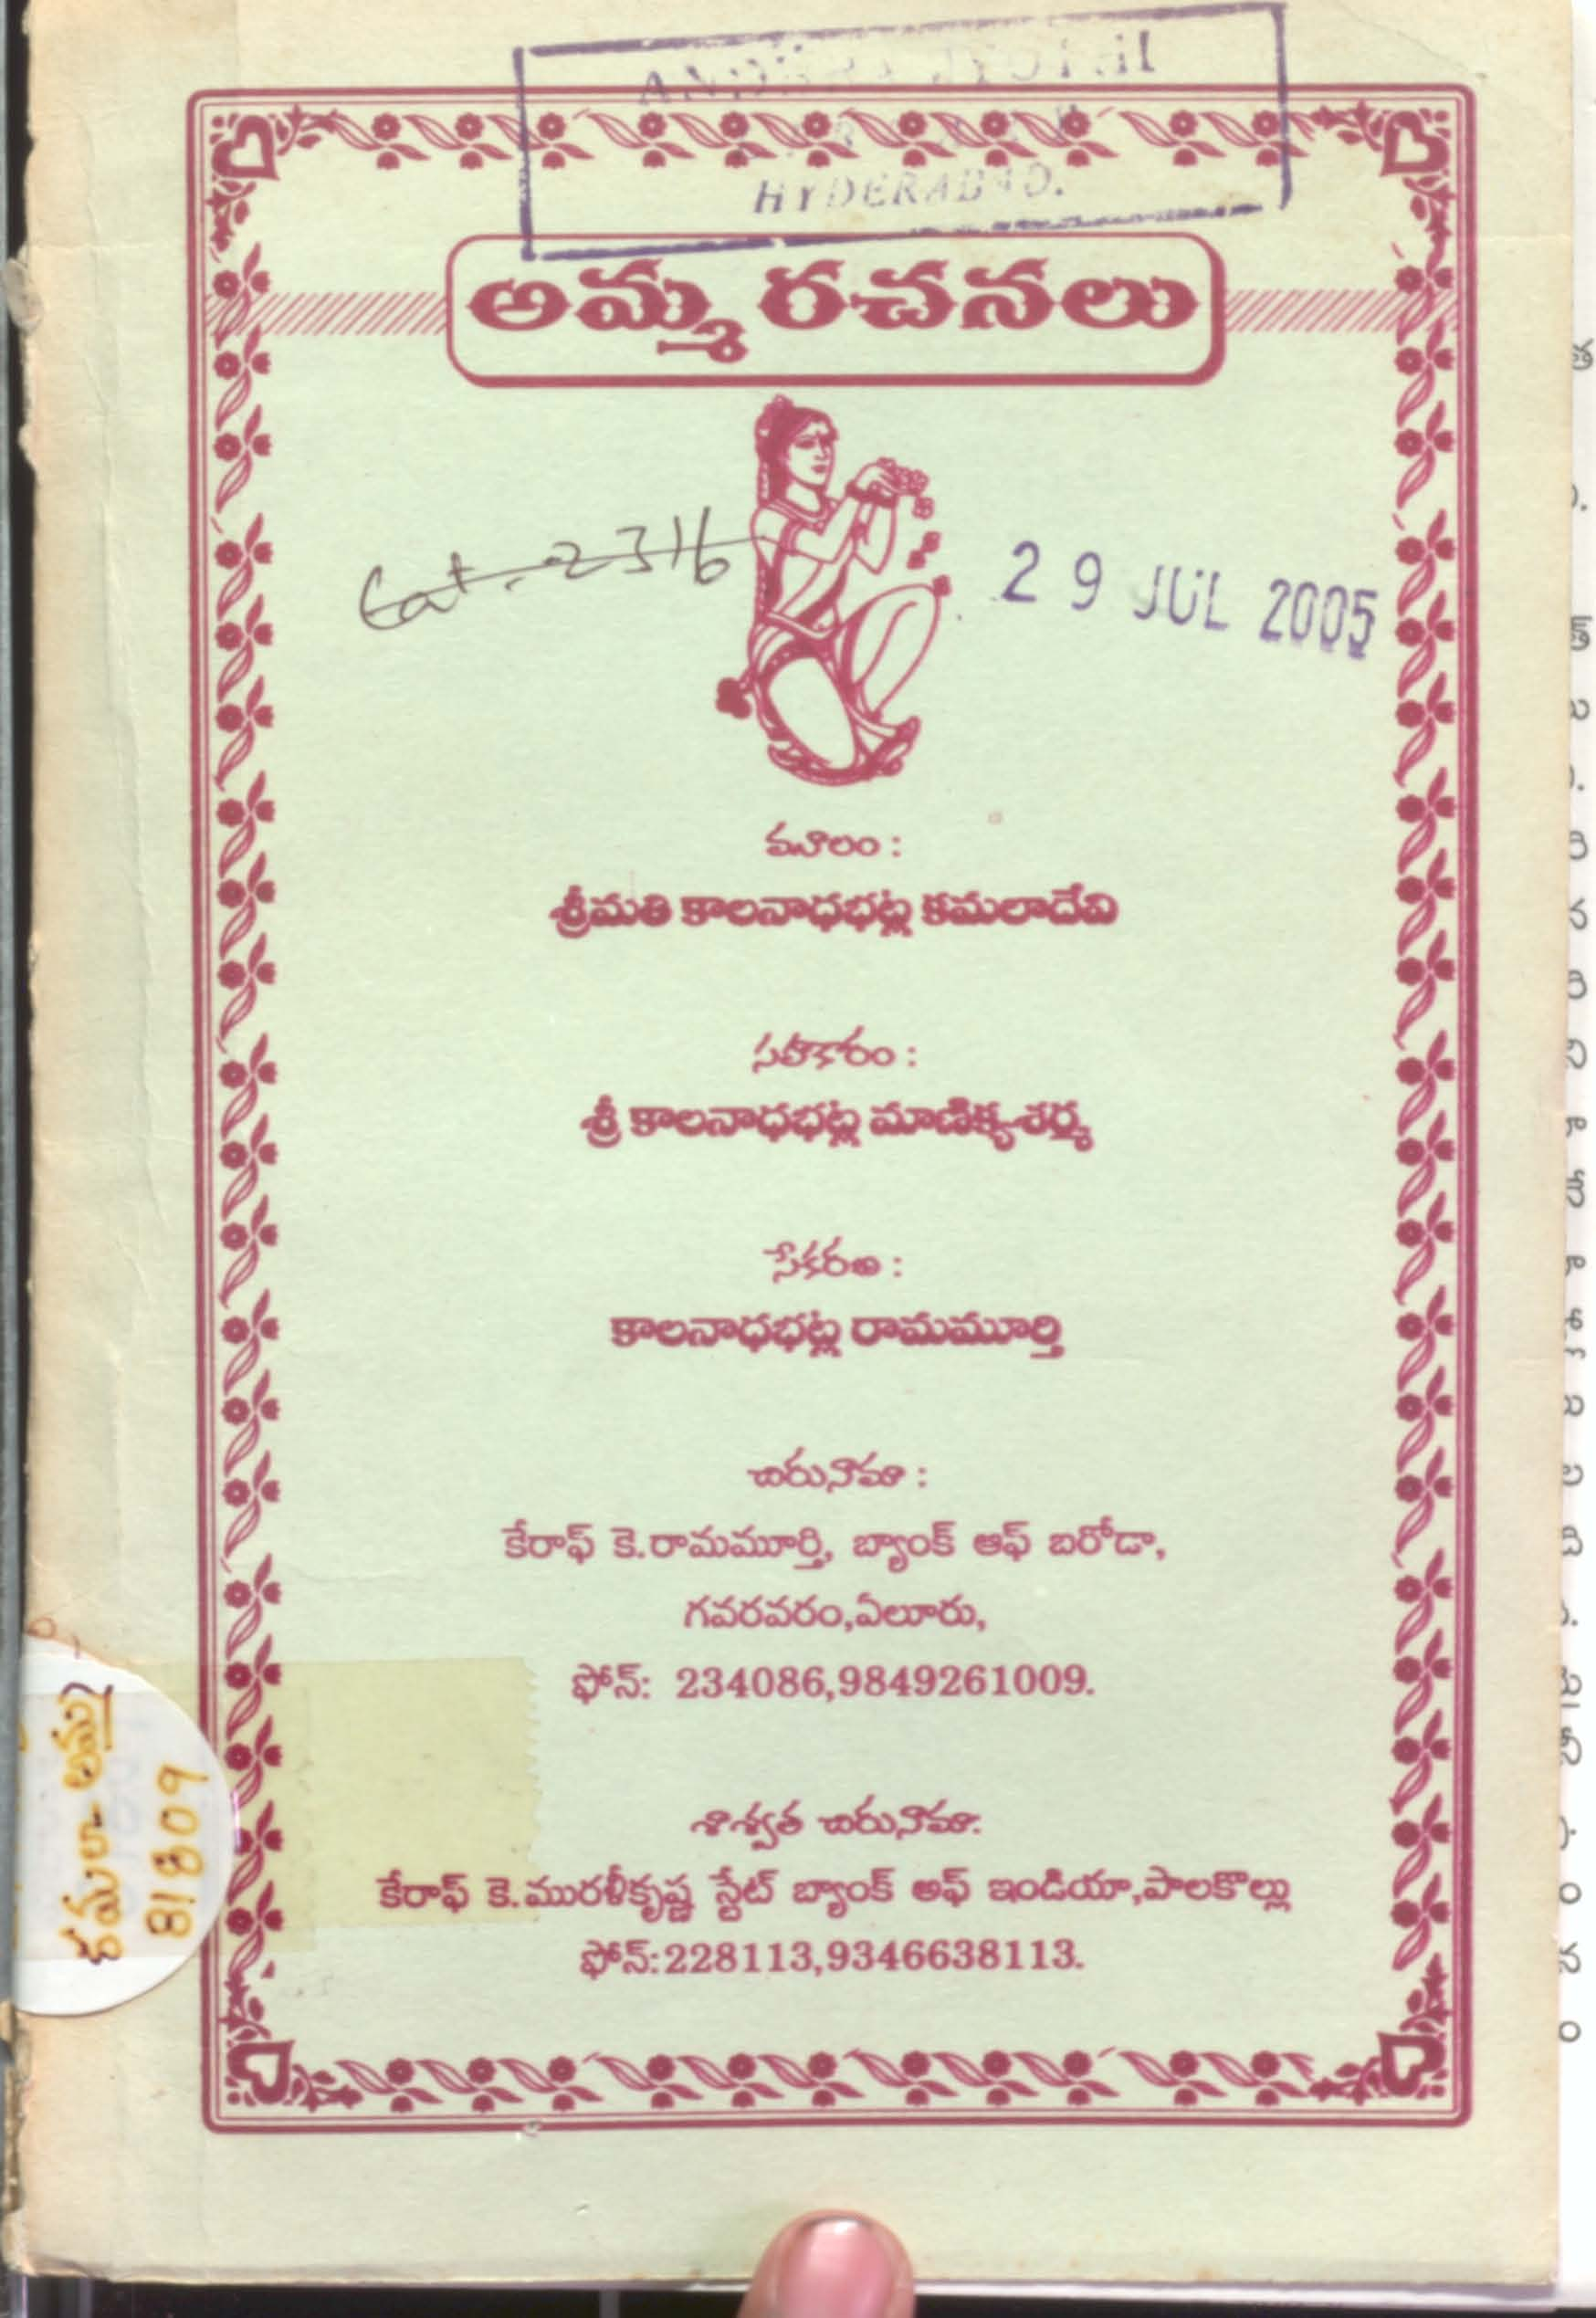 HYDERABAD.
అమ్మ రచనలు
Cat. 2316
29 JUL 2005
మూలం :
శ్రీమతి కాలనాధభట్ల కమలాదేవి
సహకారం :
శ్రీ కాలనాధభట్ల మాణిక్యశర్మ
సేకరణ :
కాలనాధభట్ల రామమూర్తి
చిరునామా :
కేరాఫ్ కె.రామమూర్తి, బ్యాంక్ ఆఫ్ బరోడా,
గవరవరం,ఏలూరు,
ఫోన్: 234086,9849261009.
శాశ్వత చిరునామా:
కేరాఫ్ కె.మురళీకృష్ణ స్టేట్ బ్యాంక్ అఫ్ ఇండియా,పాలకొల్లు
ఫోన్:228113,9346638113.
కమలా-అమ్మ
81809